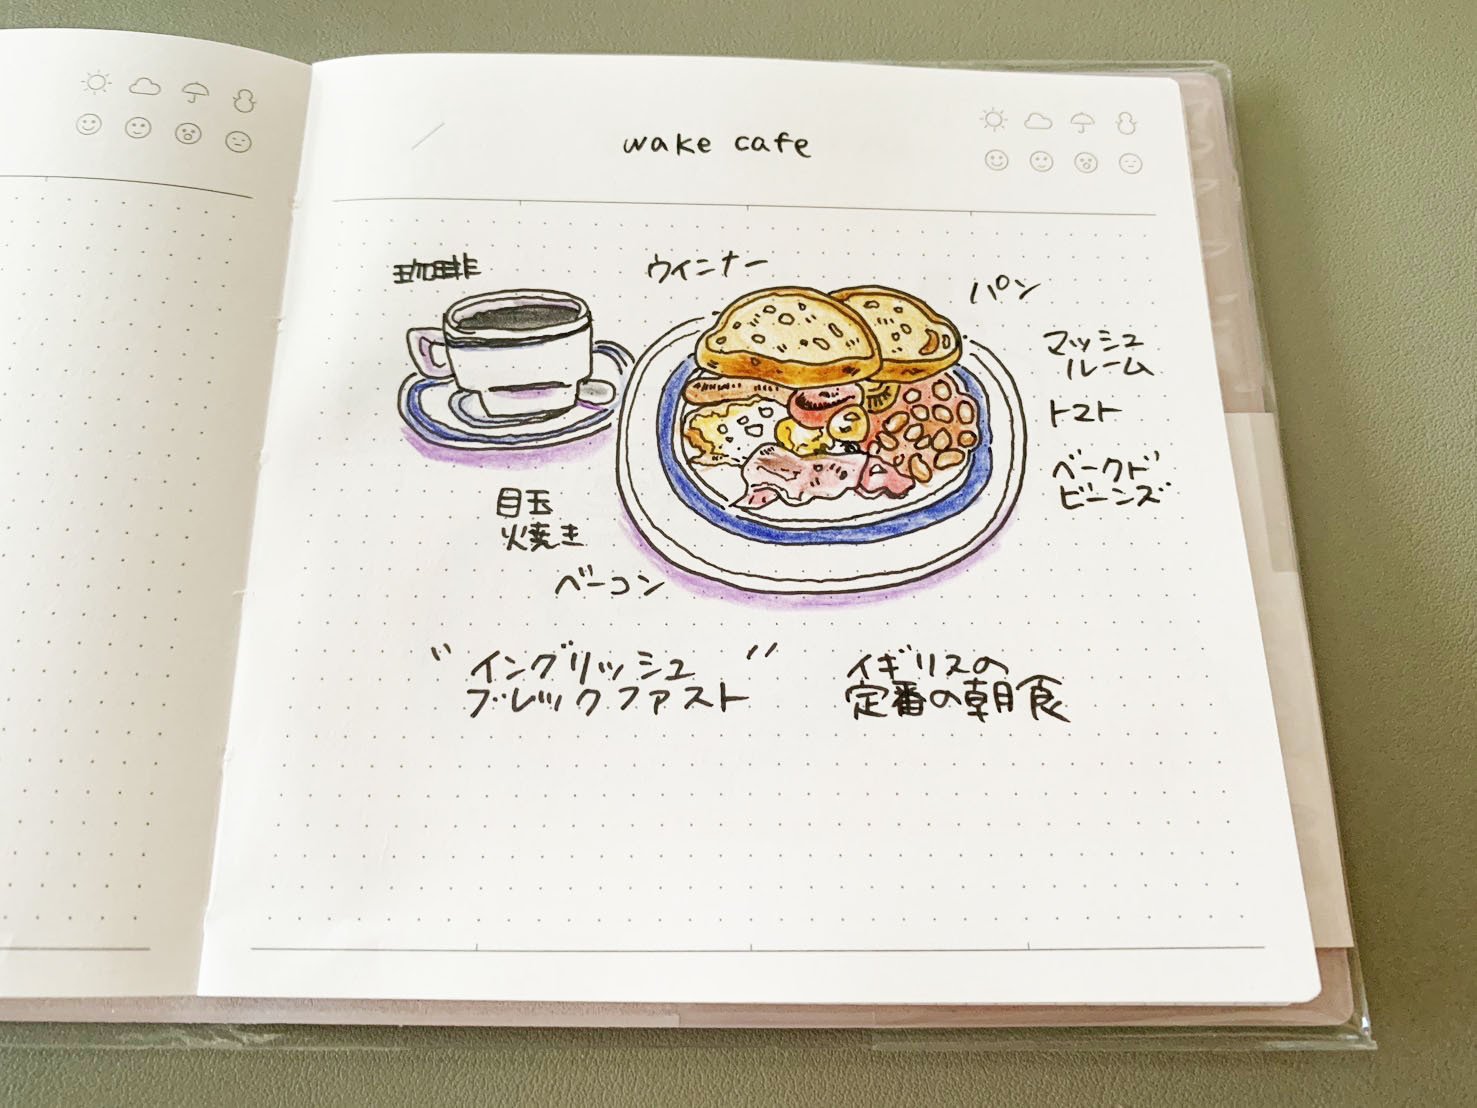 wake cafe
珈琲
ウインナー
パン
マッシュ
ルーム
トマト
ベークド
ビーンズ
目玉
焼き
ベーコン
"イングリッシュ"
ブレックファスト
イギリスの
定番の朝食